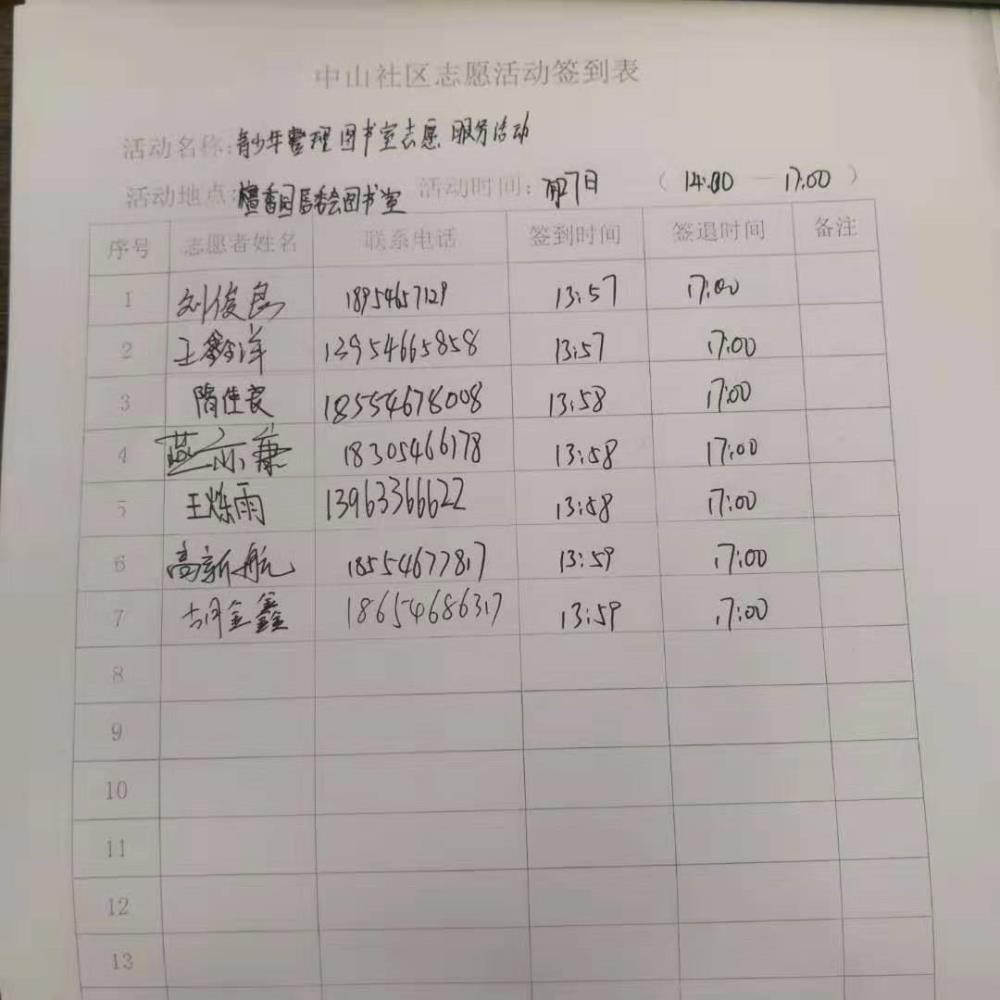 中山社区志愿活动签到表
活动名称:青少年整理图书室志愿服务活动
活动地点:檀香园居委会图书室 活动时间:7月7日 (14:00 — 17:00)
序号 志愿者姓名 联系电话 签到时间 签退时间 备注
1 刘俊良 18954657129 13:57 17:00
2 王鑫洋 13954665858 13:57 17:00
3 隋佳良 18554678008 13:58 17:00
4 燕亦 18305466178 13:58 17:00
5 王烁雨 13963366622 13:58 17:00
6 高新航 18554677817 13:59 17:00
7 胡金鑫 18654686317 13:59 17:00
8
9
10
11
12
13